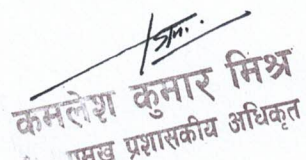 कमलेश कुमार मिश्र
प्रमुख प्रशासकीय अधिकृत